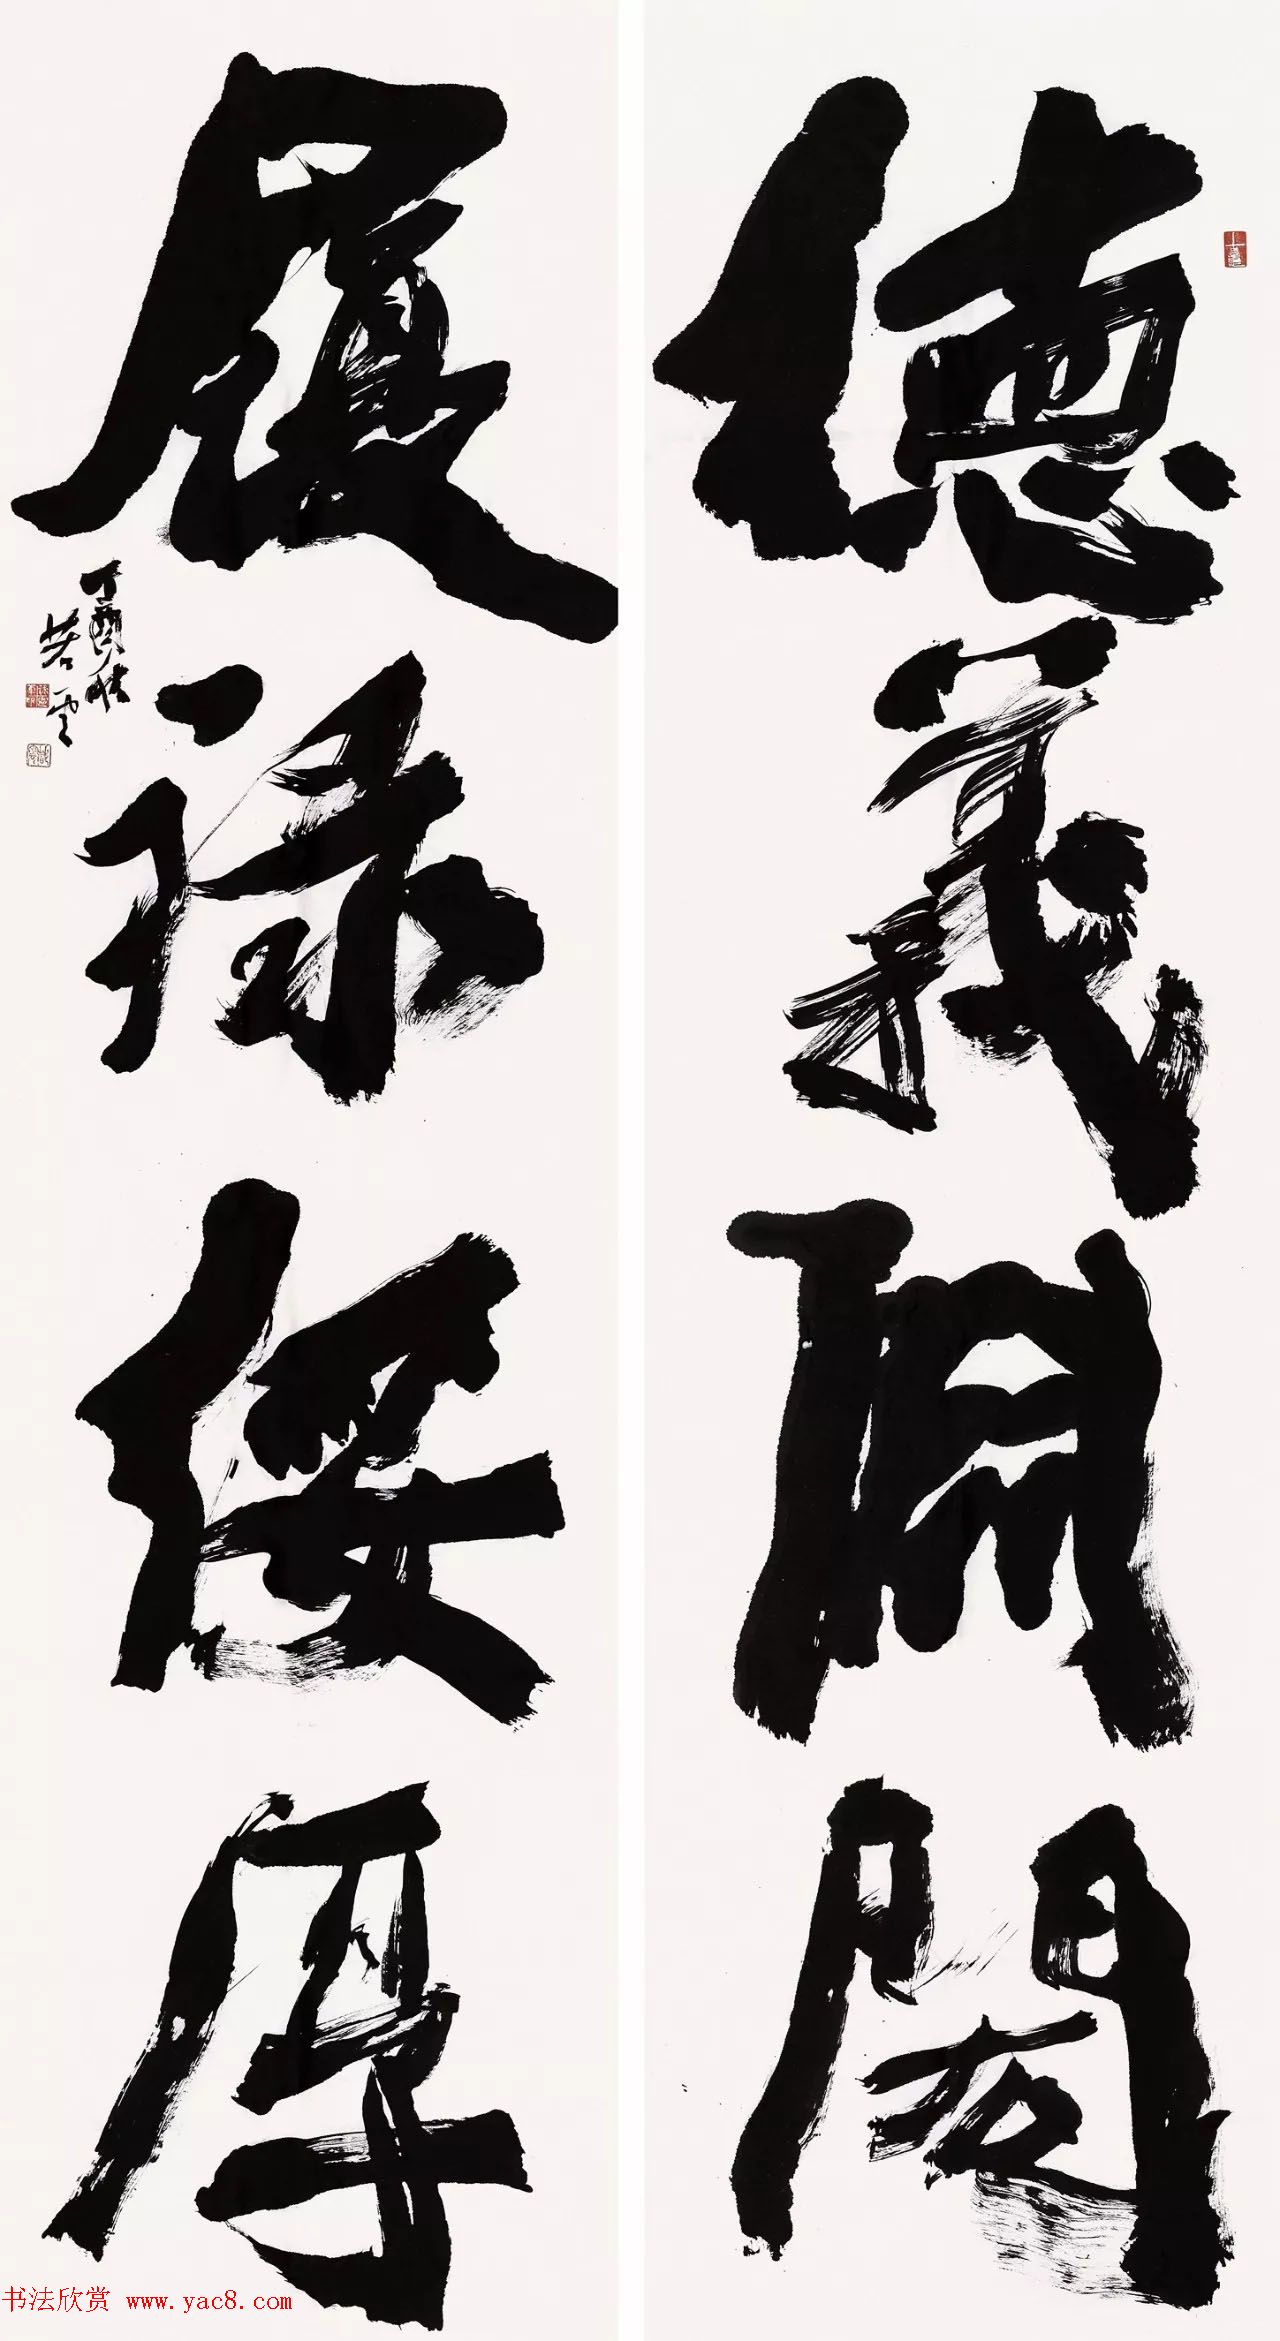 德義淵閎
履祿綏厚
丁酉秋
若云
书法欣赏 www.yac8.com